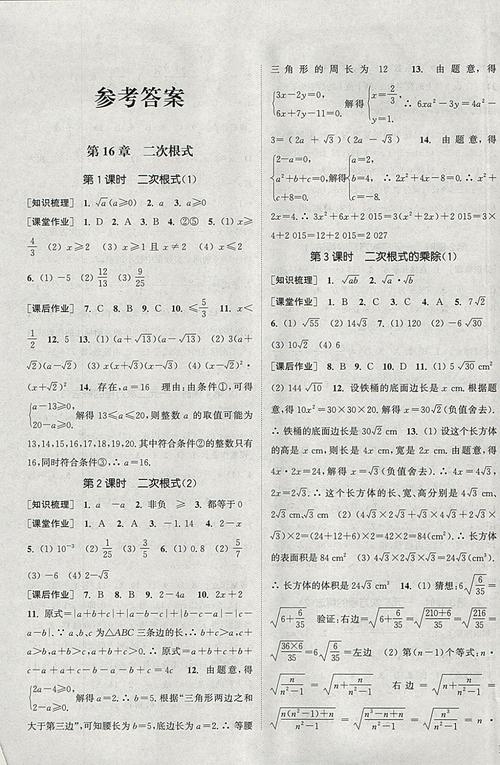 参考答案
第16章 二次根式
第1课时 二次根式(1)
[知识梳理] 1. √a(a≥0) 2. a 3. a≥0
[课堂作业] 1. D 2. A 3. B 4. ②⑤ 5. (1) x≥
4/3 (2) x≥2 (3) x≥1且x≠2 (4) x≤2
6. (1) -5 (2) 12/5 (3) 9/25
[课后作业] 7. C 8. B 9. C 10. ≤5/3 11. x<
1/2 12. 5 13. (1) (a+√13)(a-√13) (2) 3(a+√2)
(a-√2) (3) x(x+√3)(x-√3) (4) (x²+2)(x-√2)·
(x+√2) 14. 存在,a=16 理由:由条件①,可得
{a-13≥0, 20-a≥0. 解得 13≤a≤20,则整数 a 的取值可能为
13,14,15,16,17,18,19,20. 其中符合条件②的整数只有
16,同时符合条件③,∴ a=16.
第2课时 二次根式(2)
[知识梳理] 1. a -a 2. 非负 ≥ 3. 都等于0
[课堂作业] 1. A 2. A 3. -1.14 4. -2
5. (1) 10⁻³ (2) 3/5 (3) 3/5 6. (1) 0.8 (2) 5/7
(3) -6 (4) 2-√3
[课后作业] 7. D 8. B 9. 2-4a 10. 2x+2
11. 原式=|a+b+c|+|a-b-c|+|b-a-c|-|c-
a-b|. ∵ a、b、c 为△ABC 三条边的长,∴ b+c>a,a+c
>b,a+b>c,a+b+c>0. ∴ 原式=a+b+c+b+c-
a+a+c-b+c-a-b=4c 12. 由题意,得
{2a-4≥0, 2-a≥0, 解得 a=2. ∴ b=5. 根据“三角形两边之和
大于第三边”,可知腰长为 b=5,底边长为 a=2. ∴ 等腰
三角形的周长为 12 13. 由题意,得
{3x-2y=0, 6x+7y-11=0. 解得{x=2/3, y=1. ∴ 6xa²-3y=4a²-
3=(2a+√3)(2a-√3) 14. 由题意,得
{2-a=0, a²+b+c=0, c+8=0. 解得{a=2, b=4, c=-8. ∴ 2x²+4x-8=0. ∴ x²+
2x=4. ∴ 3x²+6x+2 015=3(x²+2x)+2 015=3
×4+2 015=2 027
第3课时 二次根式的乘除(1)
[知识梳理] 1. √ab 2. √a·√b
[课堂作业] 1. B 2. C 3. A 4. D 5. 7√2
6. (1) √55 (2) 14√3 7. (1) √15 (2) -6√30
(3) 10√30 (4) 6
[课后作业] 8. B 9. C 10. D 11. (1) 5√30 cm²
(2) 144√10 12. 设铁桶的底面边长是 x cm. 根据题
意,得 10x²=30×30×20. 解得 x=30√2(负值舍去).
∴ 铁桶的底面边长是 30√2 cm 13. (1) 设这个长方体
的高是 a cm,则长是 4a cm,宽是 2a cm. 由题意,得
4a·2a=24. 解得 a=√3(负值舍去). ∴ 4a=4√3,2a=
2√3. ∴ 这个长方体的长、宽、高分别是 4√3 cm、2√3 cm、
√3 cm (2) (4√3×2√3+4√3×√3+2√3×√3)
×2=(24+12+6)×2=42×2=84(cm²). ∴ 长方体
的表面积是 84 cm² (3) 4√3×2√3×√3=24√3(cm³).
∴ 长方体的体积是 24√3 cm³ 14. (1) 猜想:6√(6/35)
=√(6+6/35) 验证:右边=√(6+6/35)=√((210+6)/35)=√(216/35)=
√((36×6)/35)=6√(6/35)=左边 (2) 第 n 个等式:n·
√(n/(n²-1))=√(n+n/(n²-1)) 右边=√(n+n/(n²-1))=
√((n(n²-1)+n)/(n²-1))=√((n³-n+n)/(n²-1))=√(n³/(n²-1))=